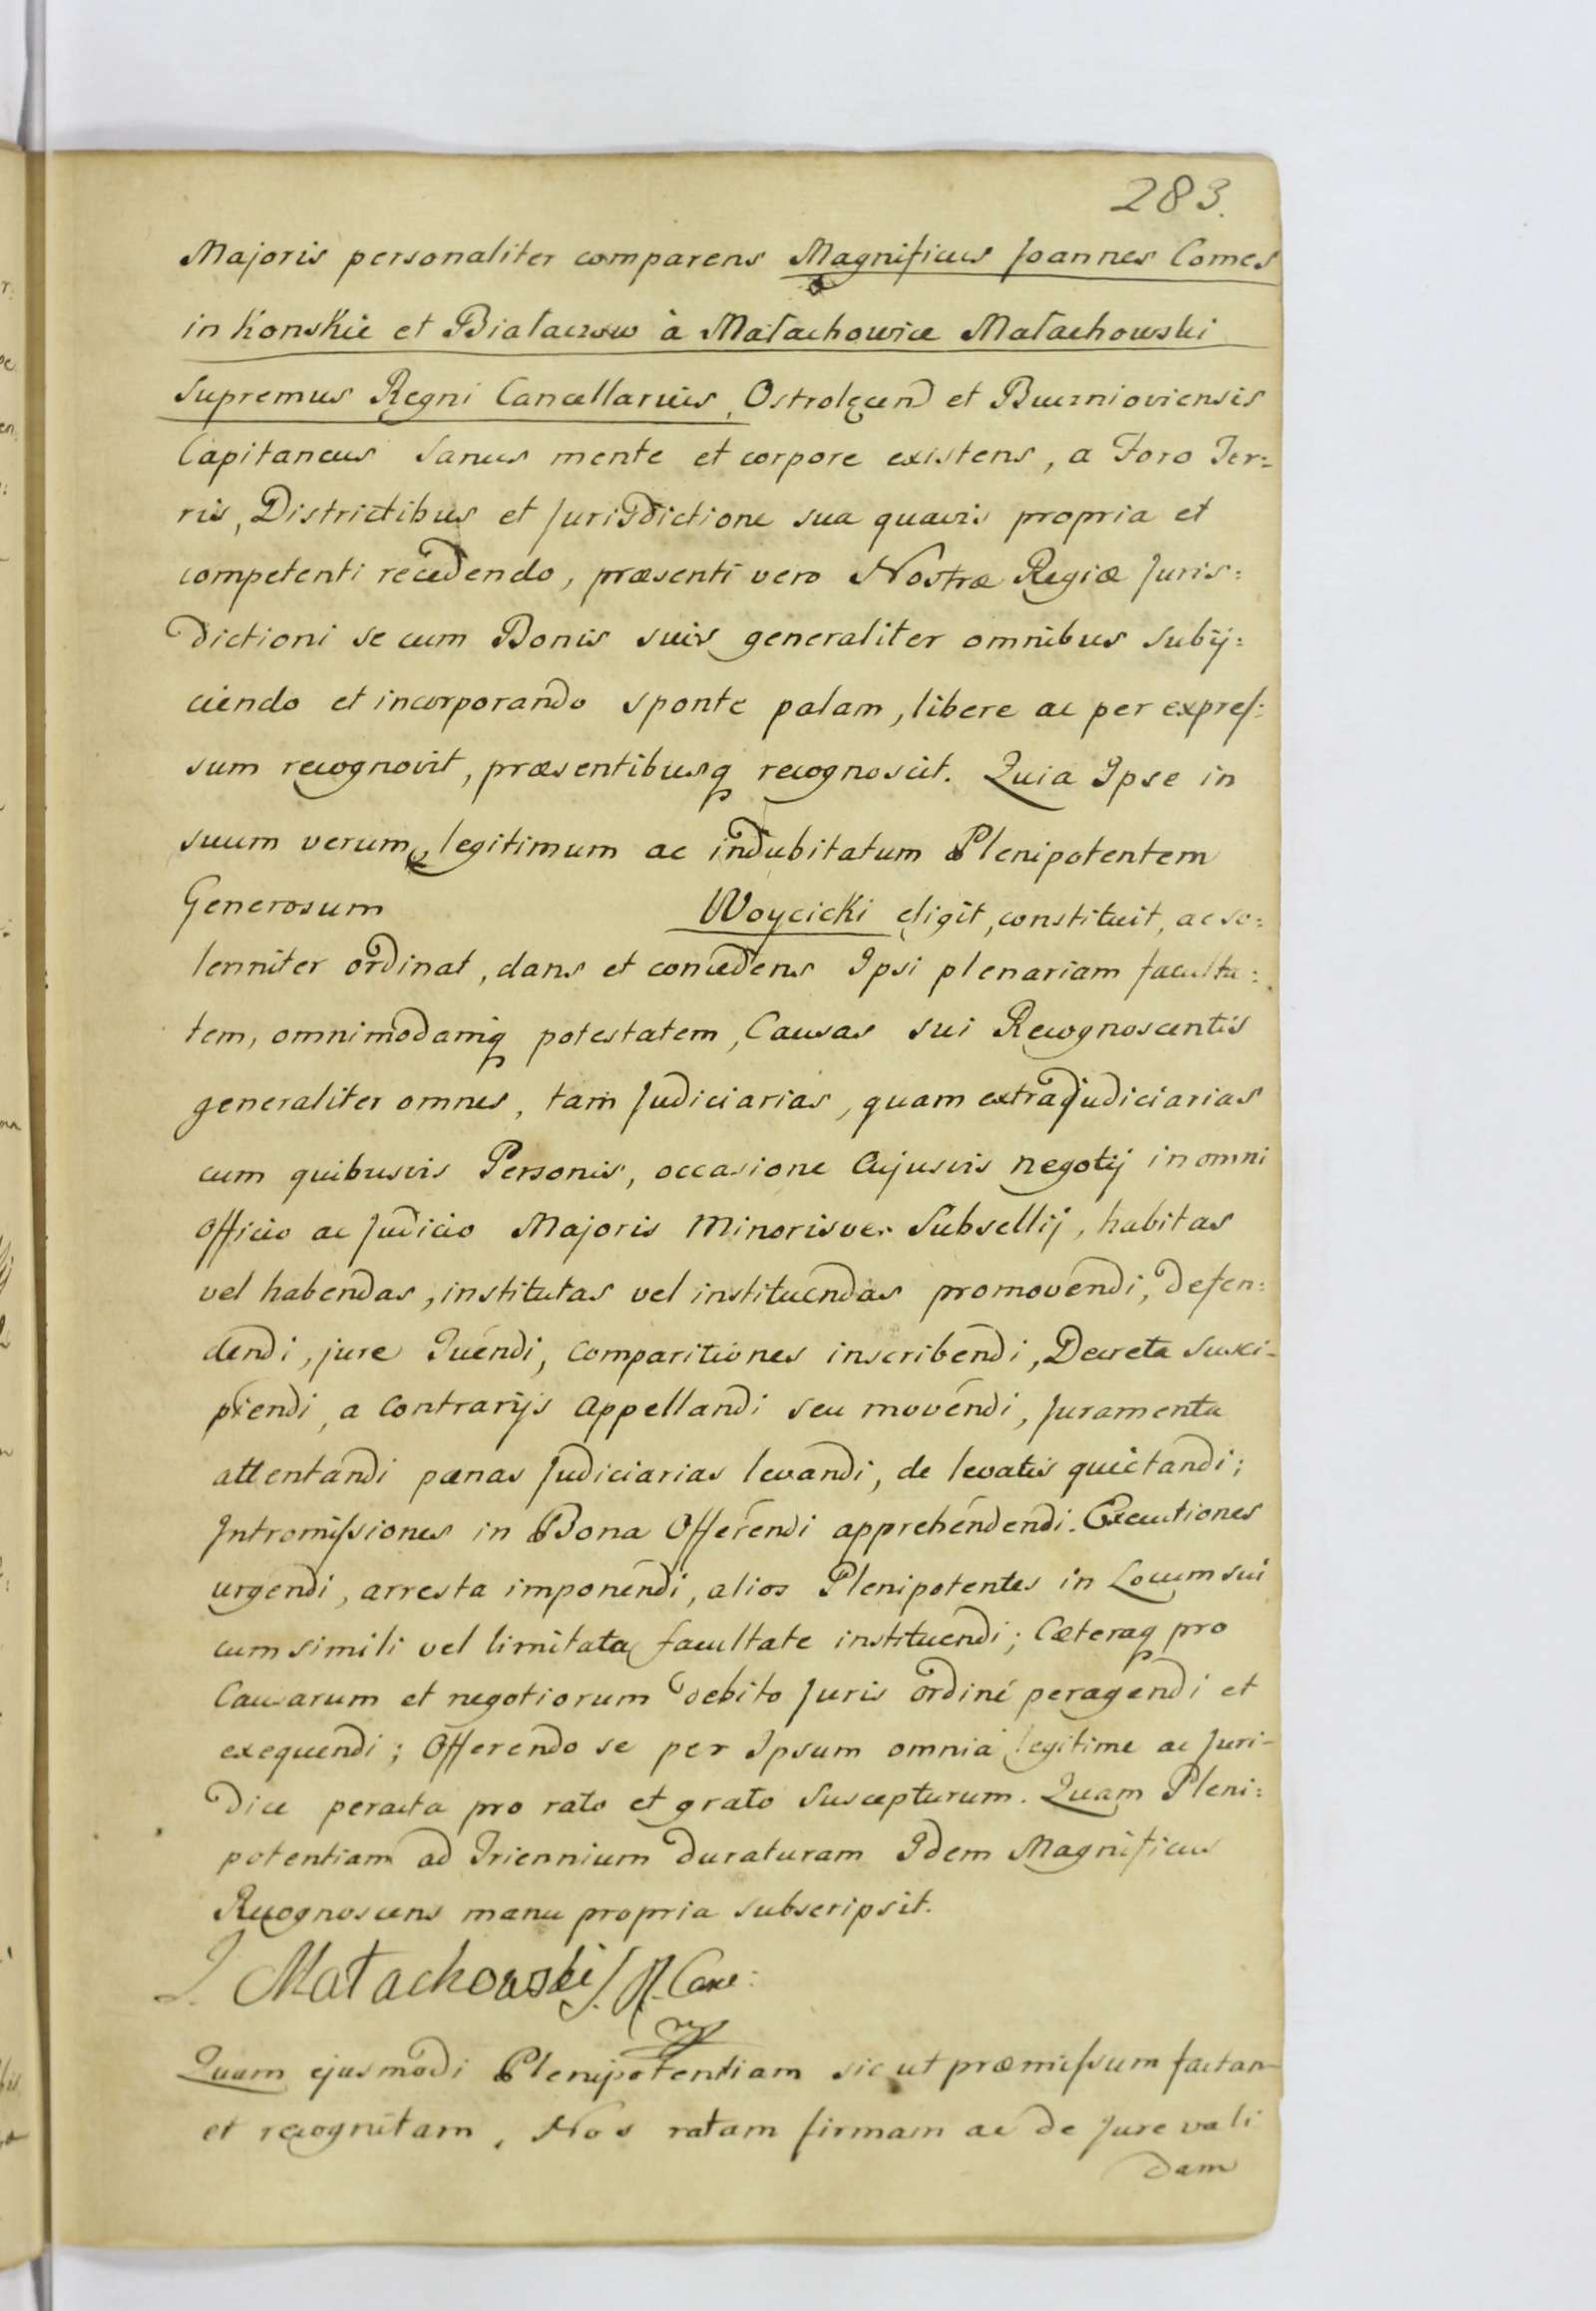 283.
Majoris personaliter comparens Magnificus Joannes Comes
in Konskie et Białaczow à Małachowice Małachowski
Supremus Regni Cancellarius, Ostrolęcen et
Capitaneus Sanus mente et corpore existens, a Foro Ter=
ris, Districtibus et Jurisdictione sua quavis propria et
competenti recedendo, præsenti vero Nostræ Regiæ Juris=
dictioni se cum Bonis suis generaliter omnibus Subij=
ciendo et incorporando sponte palam, libere ac per expres=
sum recognovit, præsentibusq recognoscit. Quia Ipse in
suum verum, legitimum ac indubitatum Plenipotentem
Generosum Woycicki eligit, constituit, ac so=
lenniter ordinat, dans et concedens Ipsi plenariam faculta=
tem, omnimodamq potestatem, Causas sui Recognoscentis
generaliter omnes, tam Judiciarias, quam extrajudiciarias
cum quibusvis Personis, occasione Cujusvis negotij in omni
Officio ac Judicio Majoris Minorisve Subsellij, habitas
vel habendas, institutas vel instituendas promovendi, defen=
dendi, jure Tuendi, Comparitiones inscribendi, Decreta Susci=
piendi, a Contrarijs Appellandi seu movendi, Juramenta
attentandi pœnas Judiciarias levandi, de levatis quietandi;
Intromissiones in Bona Offerendi apprehendendi. Executiones
urgendi, arresta imponendi, alios Plenipotentes in Locum sui
cum simili vel limitata facultate instituendi; Cæteraq pro
Causarum et negotiorum debito Juris ordine peragendi et
exequendi; Offerendo se per Ipsum omnia legitime ac Juri=
dice peracta pro rato et grato Suscepturum. Quam Pleni=
potentiam ad Triennium duraturam Idem Magnificus
Recognoscens manu propria subscripsit.
J. Małachowski S. R. Canc:
Quam ejusmodi Plenipotentiam sic ut præmissum factam
et recognitam, Nos ratam firmam ac de Jure vali
dam